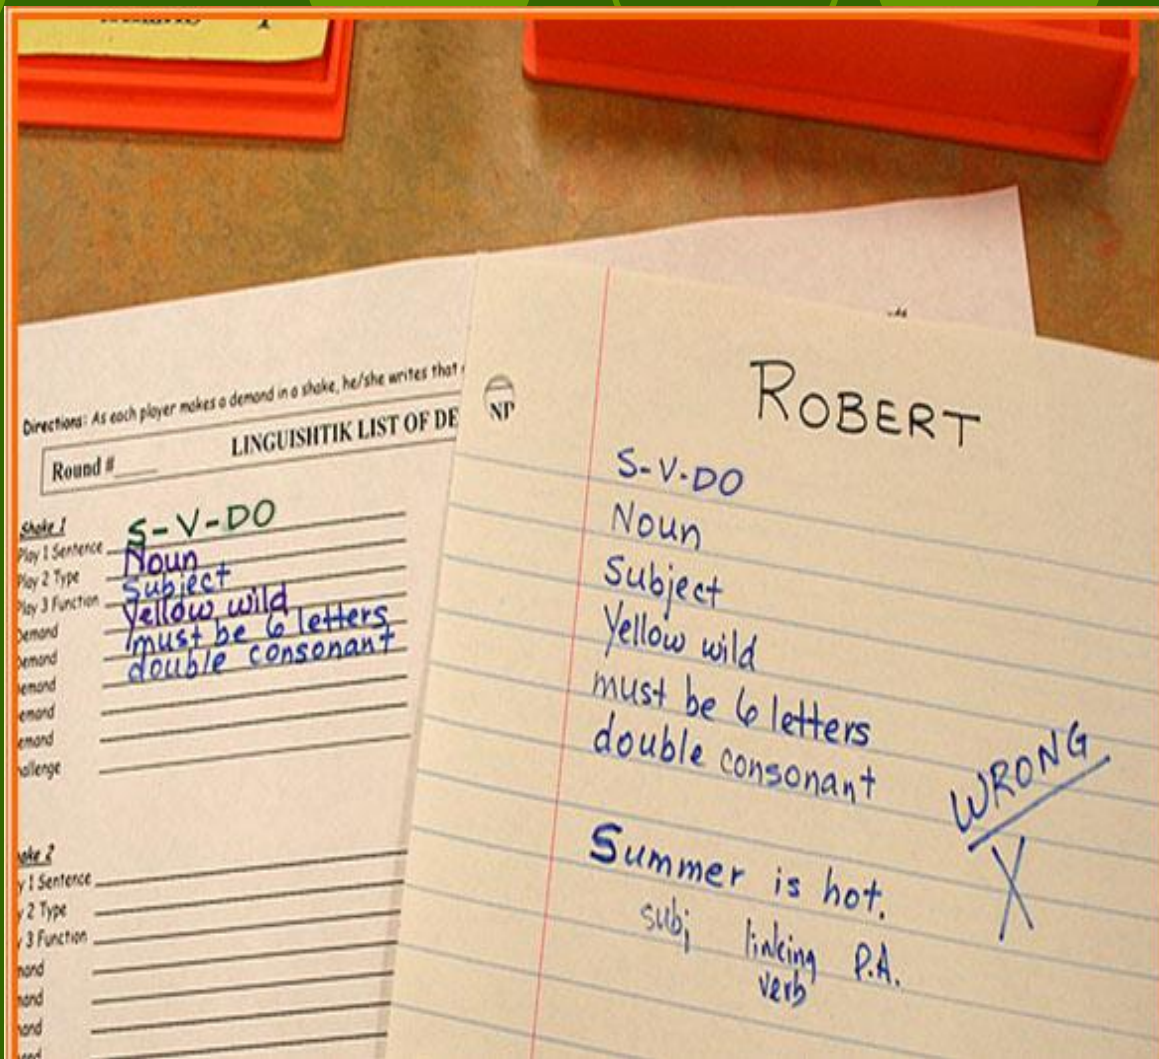 Directions: As each player makes a demand in a shake, he/she writes that
LINGUISHTIK LIST OF DE
Round #____
Shake 1
Play 1 Sentence S-V-DO
Play 2 Type Noun
Play 3 Function Subject
Demand Yellow wild
Demand must be 6 letters
Demand double consonant
emand
emand
allenge
ake 2
y 1 Sentence
y 2 Type
3 Function
mand
mand
mand
NP
ROBERT
S-V-DO
Noun
Subject
Yellow wild
must be 6 letters
double consonant
WRONG
X
Summer is hot.
subj linking P.A.
verb